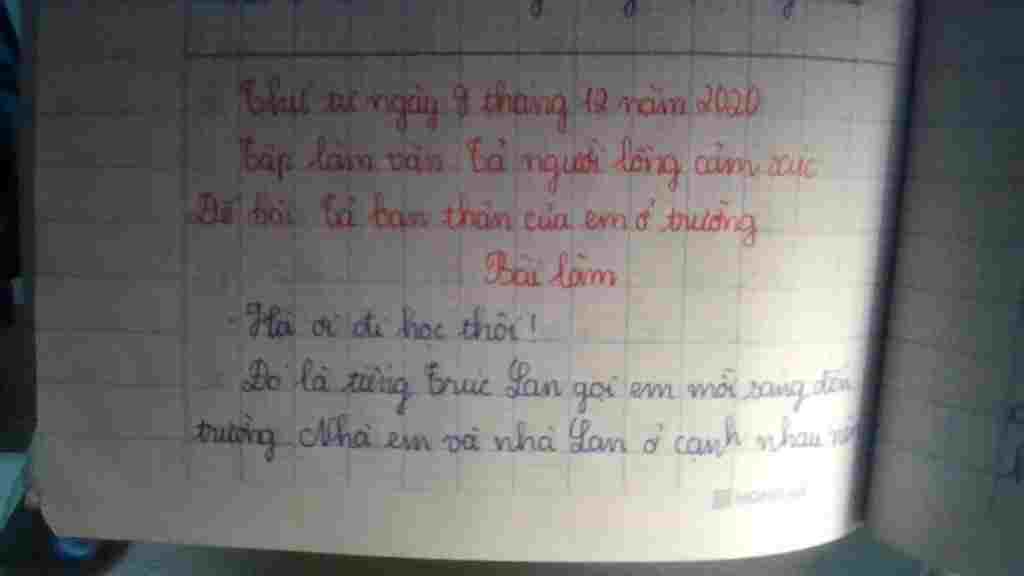 Thứ tư ngày 9 tháng 12 năm 2020
Tập làm văn Tả người lồng cảm xúc
Đề bài Tả bạn thân của em ở trường
Bài làm
- Hà ơi đi học thôi!
Đó là tiếng Trúc Lan gọi em mỗi sáng đến
trường. Nhà em và nhà Lan ở cạnh nhau